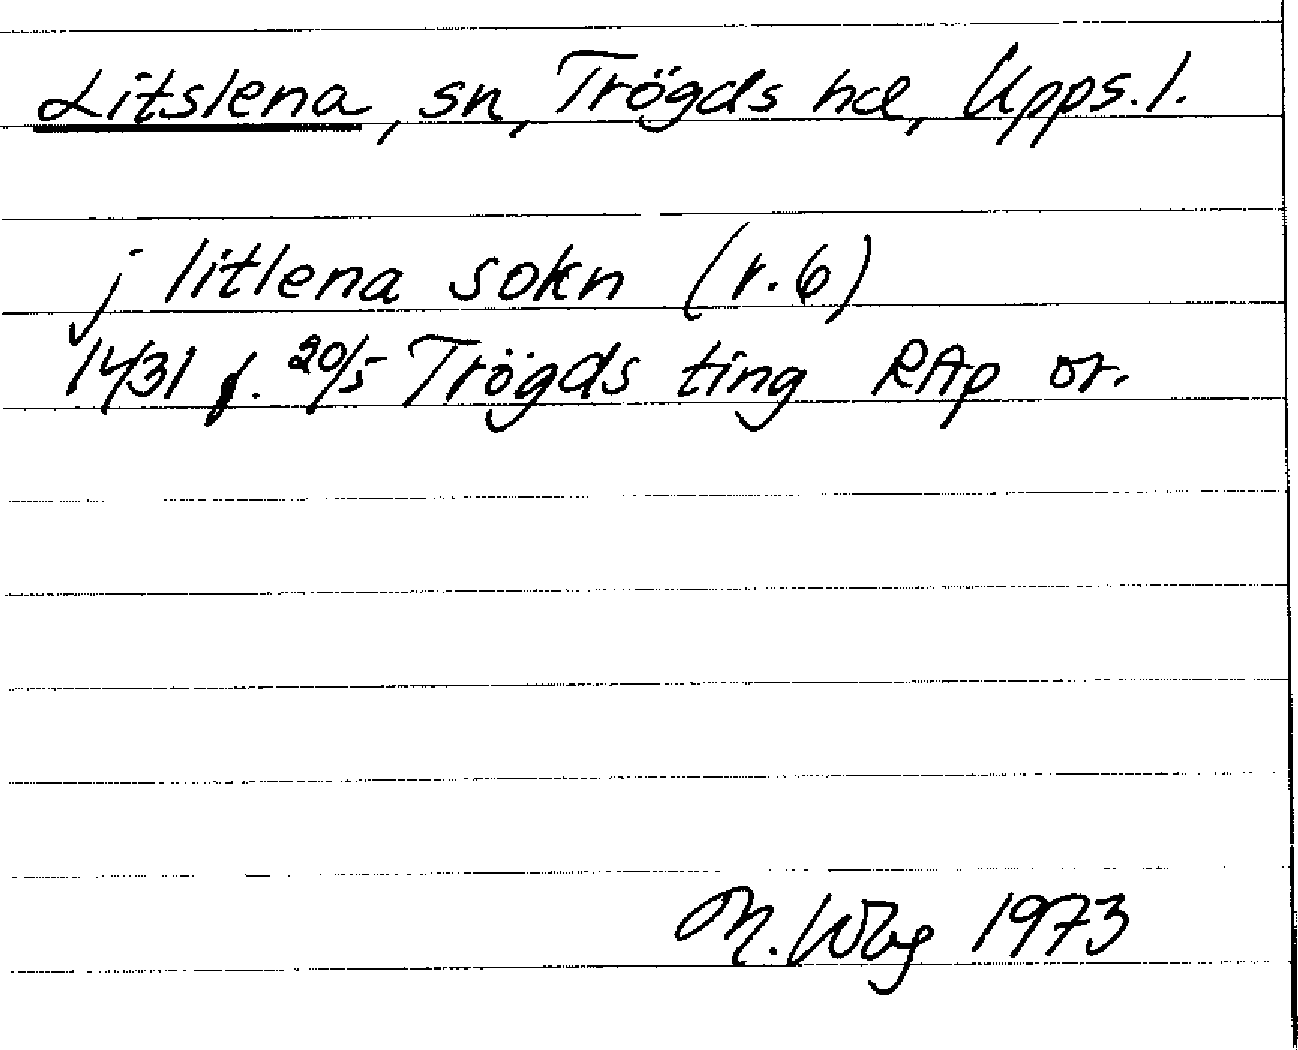 Litslena, sn, Trögds hd, Upps. l.
j litlena sokn (r. 6)
1431 f. 20/5 Trögds ting RAp or.
M. Wbg 1973